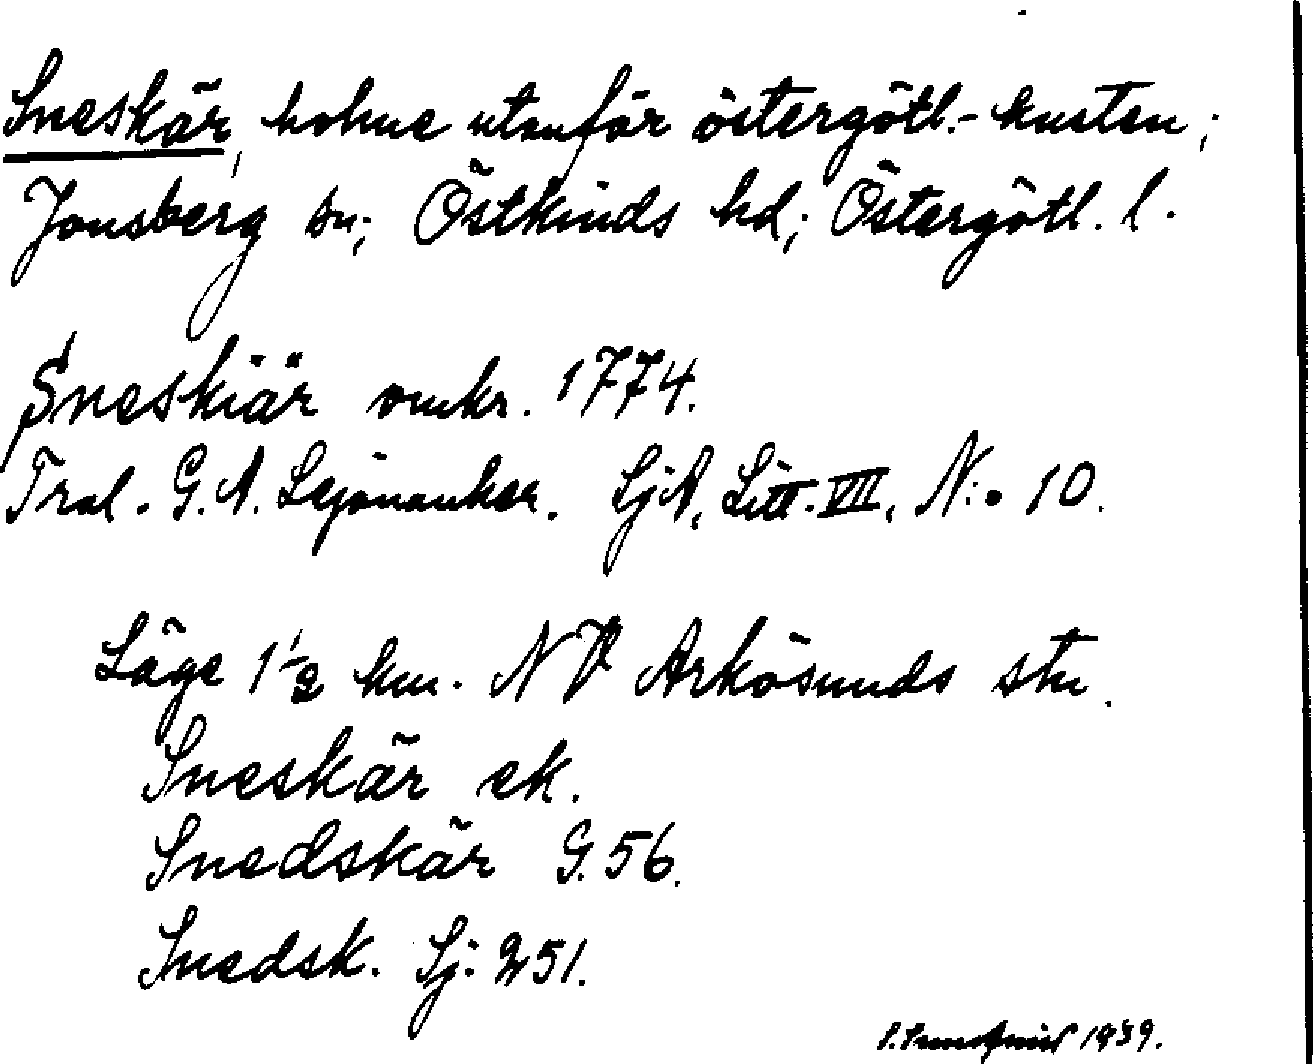 Sneskär, holme utanför östergötl.-kusten;
Jonsberg sn; Östkinds hd; Östergötl. l.
Sneskiär omkr. 1774.
Tral. G.A. Lejonanker. SjA, Litt. VII, N:o 10.
Läge 1 1/2 km. NV Arkösunds stn.
Sneskär ek.
Snedskär G. 56.
Snedsk. Sj: 251.
1939.